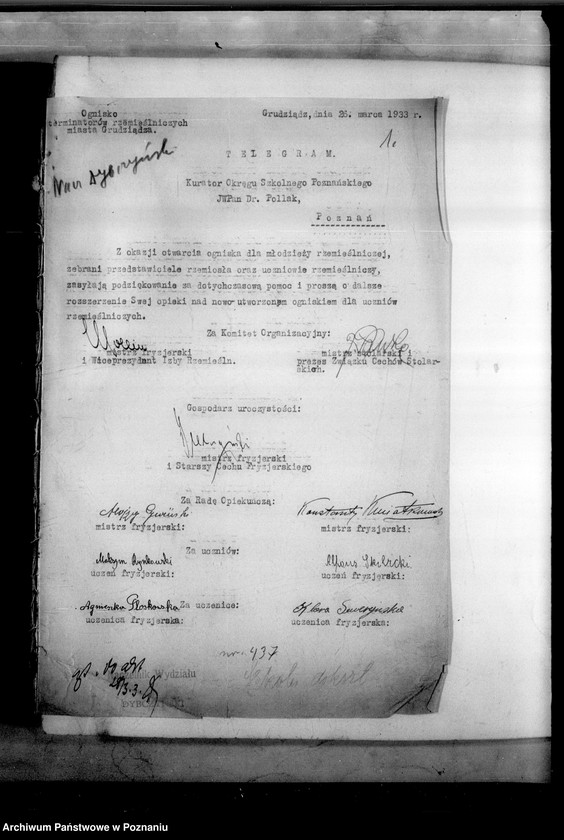 Ognisko
terminatorów rzemieślniczych
miasta Grudziądza.
Grudziądz, dnia 26. marca 1933 r.
T E L E G R A M.
Kurator Okręgu Szkolnego Poznańskiego
JWPan Dr. Pollak,
P o z n a ń
Z okazji otwarcia ogniska dla młodzieży rzemieślniczej,
zebrani przedstawiciele rzemiosła oraz uczniowie rzemieślniczy,
zasyłają podziękowanie za dotychczasową pomoc i proszą o dalsze
rozszerzenie Swej opieki nad nowo-utworzonym ogniskiem dla uczniów
rzemieślniczych.
Za Komitet Organizacyjny:
mistrz fryzjerski
i Wiceprezydent Izby Rzemieśln.
mistrz stolarski i
prezes Związku Cechów Stolar-
skich.
Gospodarz uroczystości:
mistrz fryzjerski
i Starszy Cechu Fryzjerskiego
Za Radę Opiekuńczą:
Konstanty
mistrz fryzjerski:
mistrz fryzjerski:
Za uczniów:
Alfons
uczeń fryzjerski:
uczeń fryzjerski:
Za uczenice:
Agnieszka Płoskowska
Klara
uczenica fryzjerska:
uczenica fryzjerska:
437
Wydziału
Archiwum Państwowe w Poznaniu